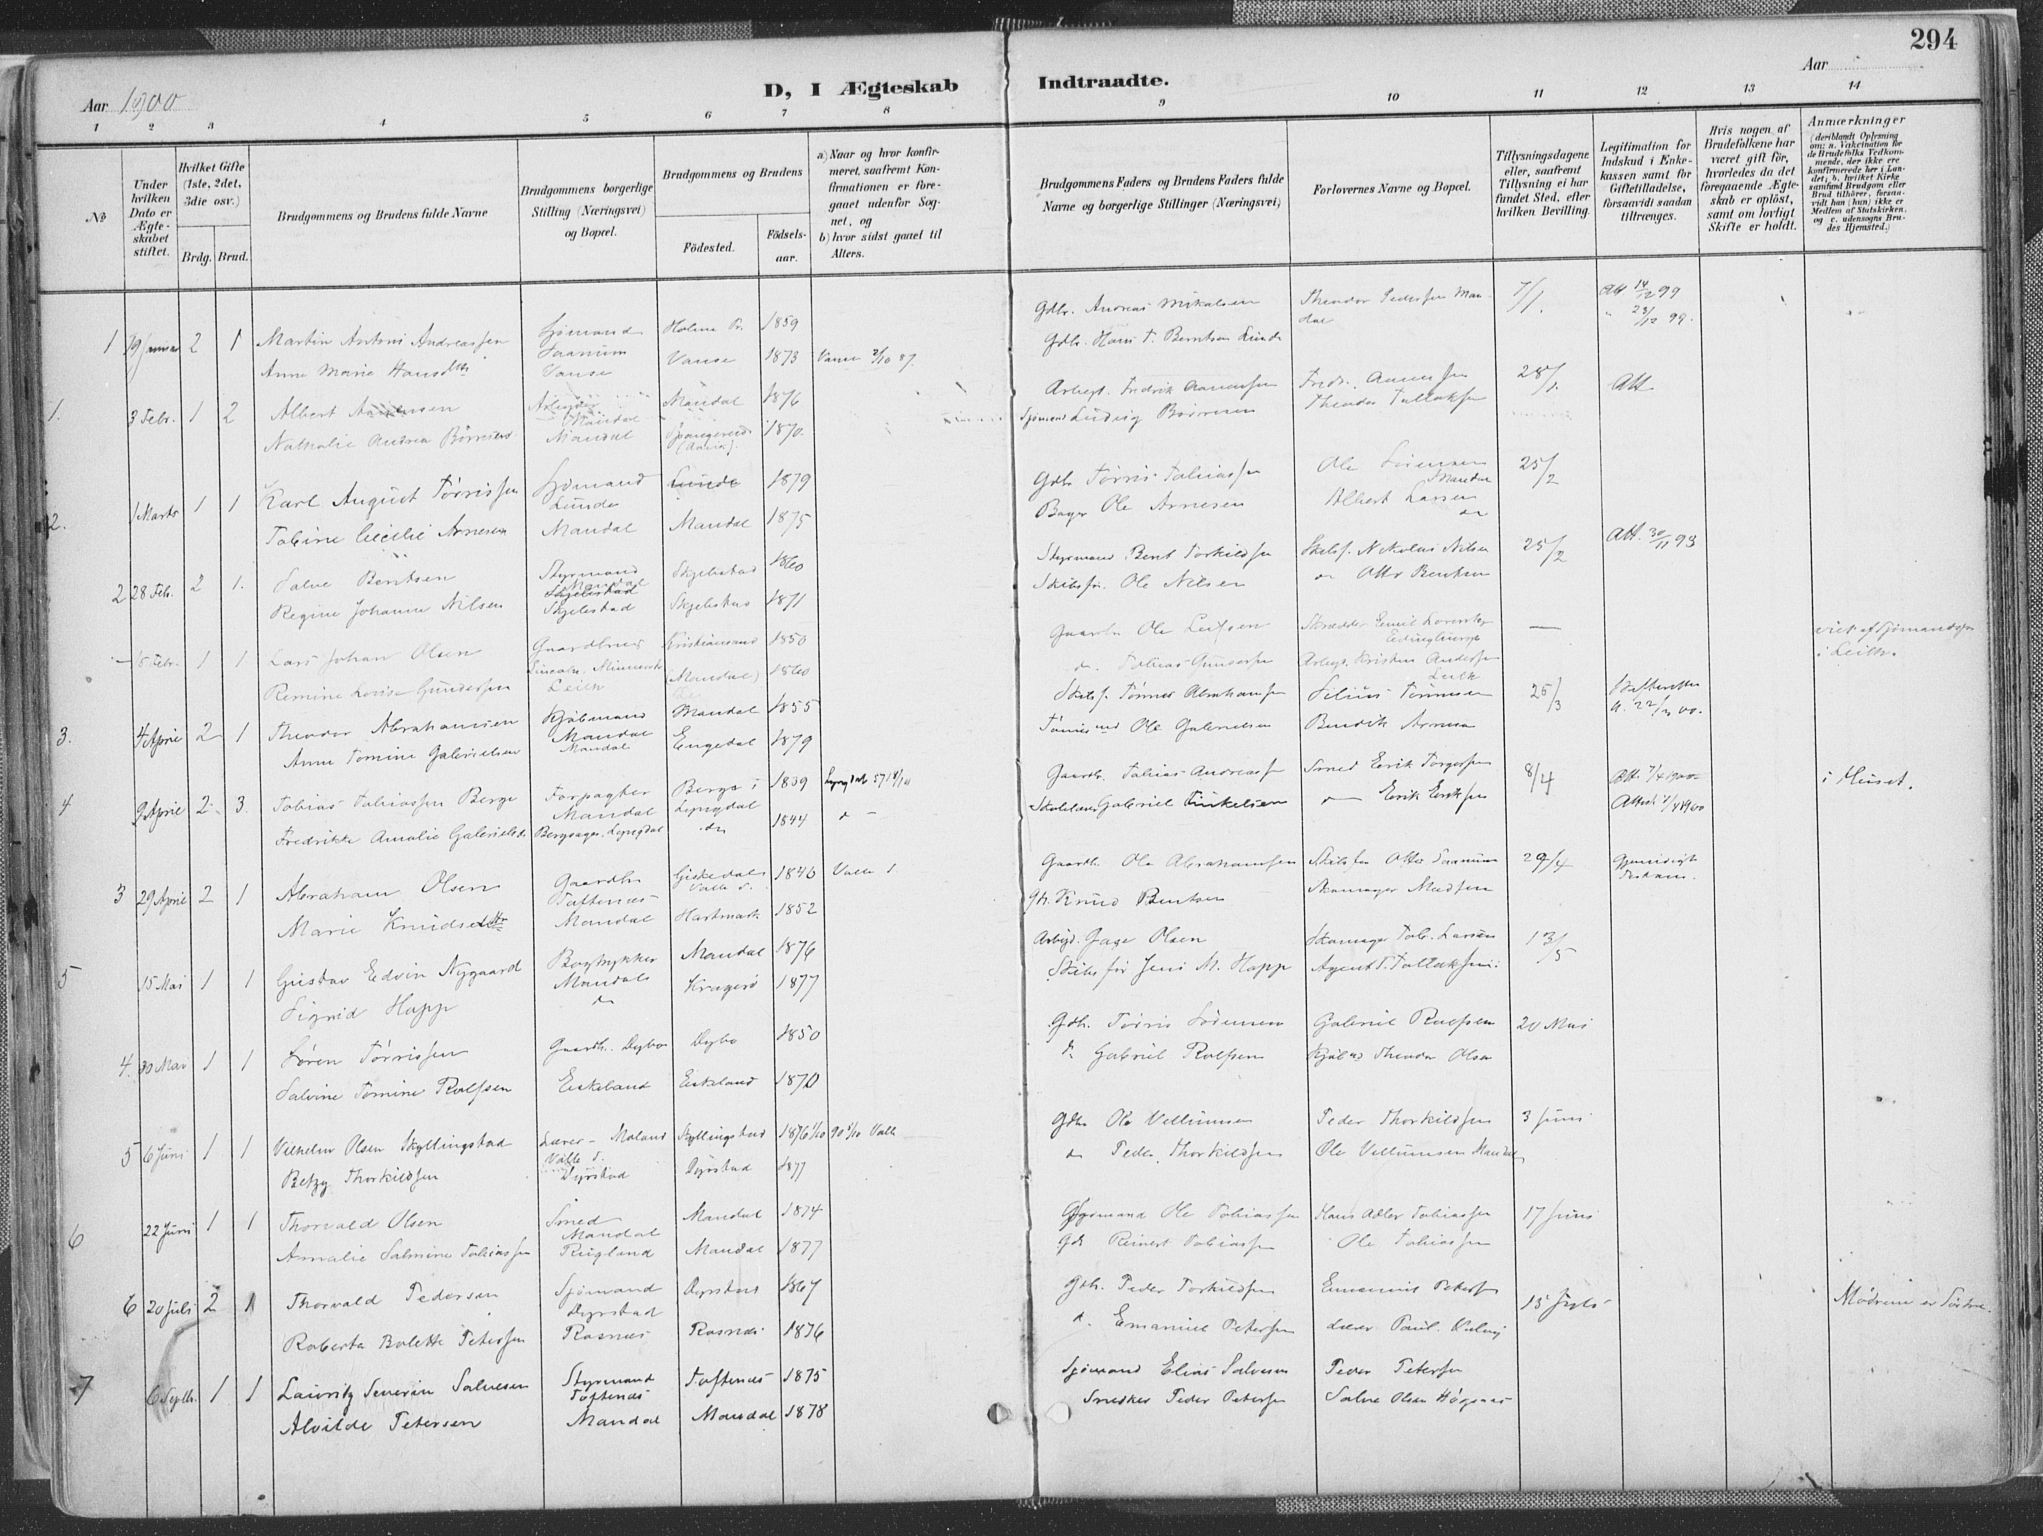 294
Aar 1900
D, I Ægteskab Indtraadte.
Aar
1 2 3 4 5 6 7 8 9 10 11 12 13 14
No
Under hvilken Dato er Ægteskabet stiftet.
Hvilket Gifte (1ste, 2det, 3die osv.)
Brdg. Brud.
Brudgommens og Brudens fulde Navne
Brudgommens borgerlige Stilling (Næringsvei) og Bopæl.
Brudgommens og Brudens
Fødested. Fødsels-aar.
a) Naar og hvor konfirmeret, saafremt Konfirmationen er foregaaet udenfor Sognet, og
b) hvor sidst gaaet til Alters.
Brudgommens Faders og Brudens Faders fulde Navne og borgerlige Stillinger (Næringsvei)
Forlovernes Navne og Bopæl.
Tillysningsdagene eller, saafremt Tillysning ei har fundet Sted, efter hvilken Bevilling.
Legitimation for Indskud i Enkekassen samt for Giftetilladelse, forsaavidt saadan tiltrænges.
Hvis nogen af Brudefolkene har været gift før, hvorledes da det foregaaende Ægteskab er opløst, samt om lovligt Skifte er holdt.
Anmærkninger (deriblandt Oplysning om: a. Vakcination for de Brudefolks Vedkommende, der ikke ere konfirmerede her i Landet; b. hvilket Kirkesamfund Brudgom eller Brud tilhører, forsaavidt han (hun) ikke er Medlem af Statskirken, og c. udensogns Brudes Hjemsted.)
1 19 Januar 2 1 Martin Antoni Andreassen Sjømand Holme Pr. 1859 Gdb. Andreas Mikalsen Theodor Pedersen Mandal 7/1. Att 14/12 99
Anne Marie Hansdtr Vanse Vanse 1873 Vanse 2/10 87. Gdb. Hans T. Berntsen Lunde " 23/12 99.
1. 3 Febr. 1 2 Albert Aanensen Arbeider Mandal Mandal 1876 Arbeid. Fredrik Aanensen Fredr. Aanensen 28/1. Att
Nathalie Andrea Børresen Mandal 1870. Sjømand Ludvig Børresen Theodor Tallaksen
2. 1 Marts 1 1 Karl August Tørrissen Sjømand Lunde Lunde 1879 Gdb Tørris Tobiassen Ole Sørensen Mandal 25/2
Tobine Cecilie Arnesen Mandal Mandal 1875 Bager Ole Arnesen Albert Larsen do
2 28 Feb. 2 1. Salve Bentsen Styrmand Mandal Skjebstad 1860 Styrmand Bent Torkildsen Skibsf. Nikolai Nilsen 25/2 Att. 30/11 93
Regine Johanne Nilsen Skjebstad 1871 Skibsfør. Ole Nilsen do Otto Bentsen
Febr. 1 1 Lars Johan Olsen Gaardbrug Kristiansand 1850 Gaardb. Ole Leifsen Skrædder Emil — viet af Sjømandspr. i Leith.
Remine Lovise Gundersen Leith Mandal 1860 do. Tobias Gundersen Arbeid. Kristen Andersen Leith
3. 4 April 2 1 Theodor Abrahamsen Kjøbmand Mandal Mandal 1855 Skibsf. Tønnes Abrahamsen Tønnesen 25/3 Skifteretten
Anne Tomine Gabrielsen Mandal Engedal 1879 Tømmermd Ole Gabrielsen Bendik Arnesen
4 9 April 2 3. Tobias Tobiassen Berge Forpagter Mandal Berge i Lyngdal 1839 Gaardb. Tobias Andreassen Smed Eerik Torgersen 8/4 Att. 7/4 1900 i Huset.
Fredrikke Amalie Gabrielsdtr Bergsager, Lyngdal do 1844 Gabriel Tinkelsen do Erik Eriksen Attest 7/4 1900
3 29 April 2 1 Abraham Olsen Gaardbr. Toftenes Giskedal Valle S. 1846 Valle S. Gaardb. Ole Abrahamsen Skibsfør Otto 29/4
Marie Knudsdtr Mandal Hartmark 1852 Gb. Knud Bentsen Skomager Madsen
5 15 Mai 1 1 Gustav Edvin Nygaard Bogtrykker Mandal Mandal 1876 Arbeid. Jage Olsen Skomager Tob. Larsen 13/5
Sigrid Happ do Kragerø 1877 Skibsfør Jens M. Happ Agent T. Tallaksen.
4. 30 Mai 1 1 Søren Tørrissen Gaardb. Dybo Dybo 1850 Gdb. Tørris Sørensen Gabriel Rolfsen 20 Mai
Salvine Tomine Rolfsen Eikeland Eikeland 1870 do Gabriel Rolfsen Kjøbmd Theodor Olsen
5 6 Juni 1 1 Vilhelm Olsen Skyllingstad Lærer - Moland Valle S. Skyllingstad 1876 90 Valle Gdb Ole Vellumsen Peder Thorkildsen 3 Juni
Betzy Thorkildsen Dyrstad Dyrstad 1877 do Peder Thorkildsen Ole Vellumsen Mandal
6 22 Juni 1 1 Thorvald Olsen Smed Mandal Mandal 1874 Ole Tobiassen Hans Adler Tobiassen 17 Juni
Amalie Salmine Tobiassen Rugland Mandal 1877 Gdb Reinert Tobiassen Ole Tobiassen
6 20 Juli 2 1 Thorvald Pedersen Sjømand Dyrstad Dyrstad 1867 Gdb. Peder Torkildsen Emanuel Petersen 15 Juli Mødrene er Søstre.
Roberta Bolette Petersen Rosnæs Rosnæs 1876 do. Emanuel Petersen Lærer Paul
7 6 Septbr. 1 1 Lauritz Severin Salvesen Styrmand Toftenæs Toftenæs 1875 Sjømand Elias Salvesen Peder Petersen
Alvilde Petersen Mandal Mandal 1878 Snedker Peder Petersen Salve Olsen Høgsnes